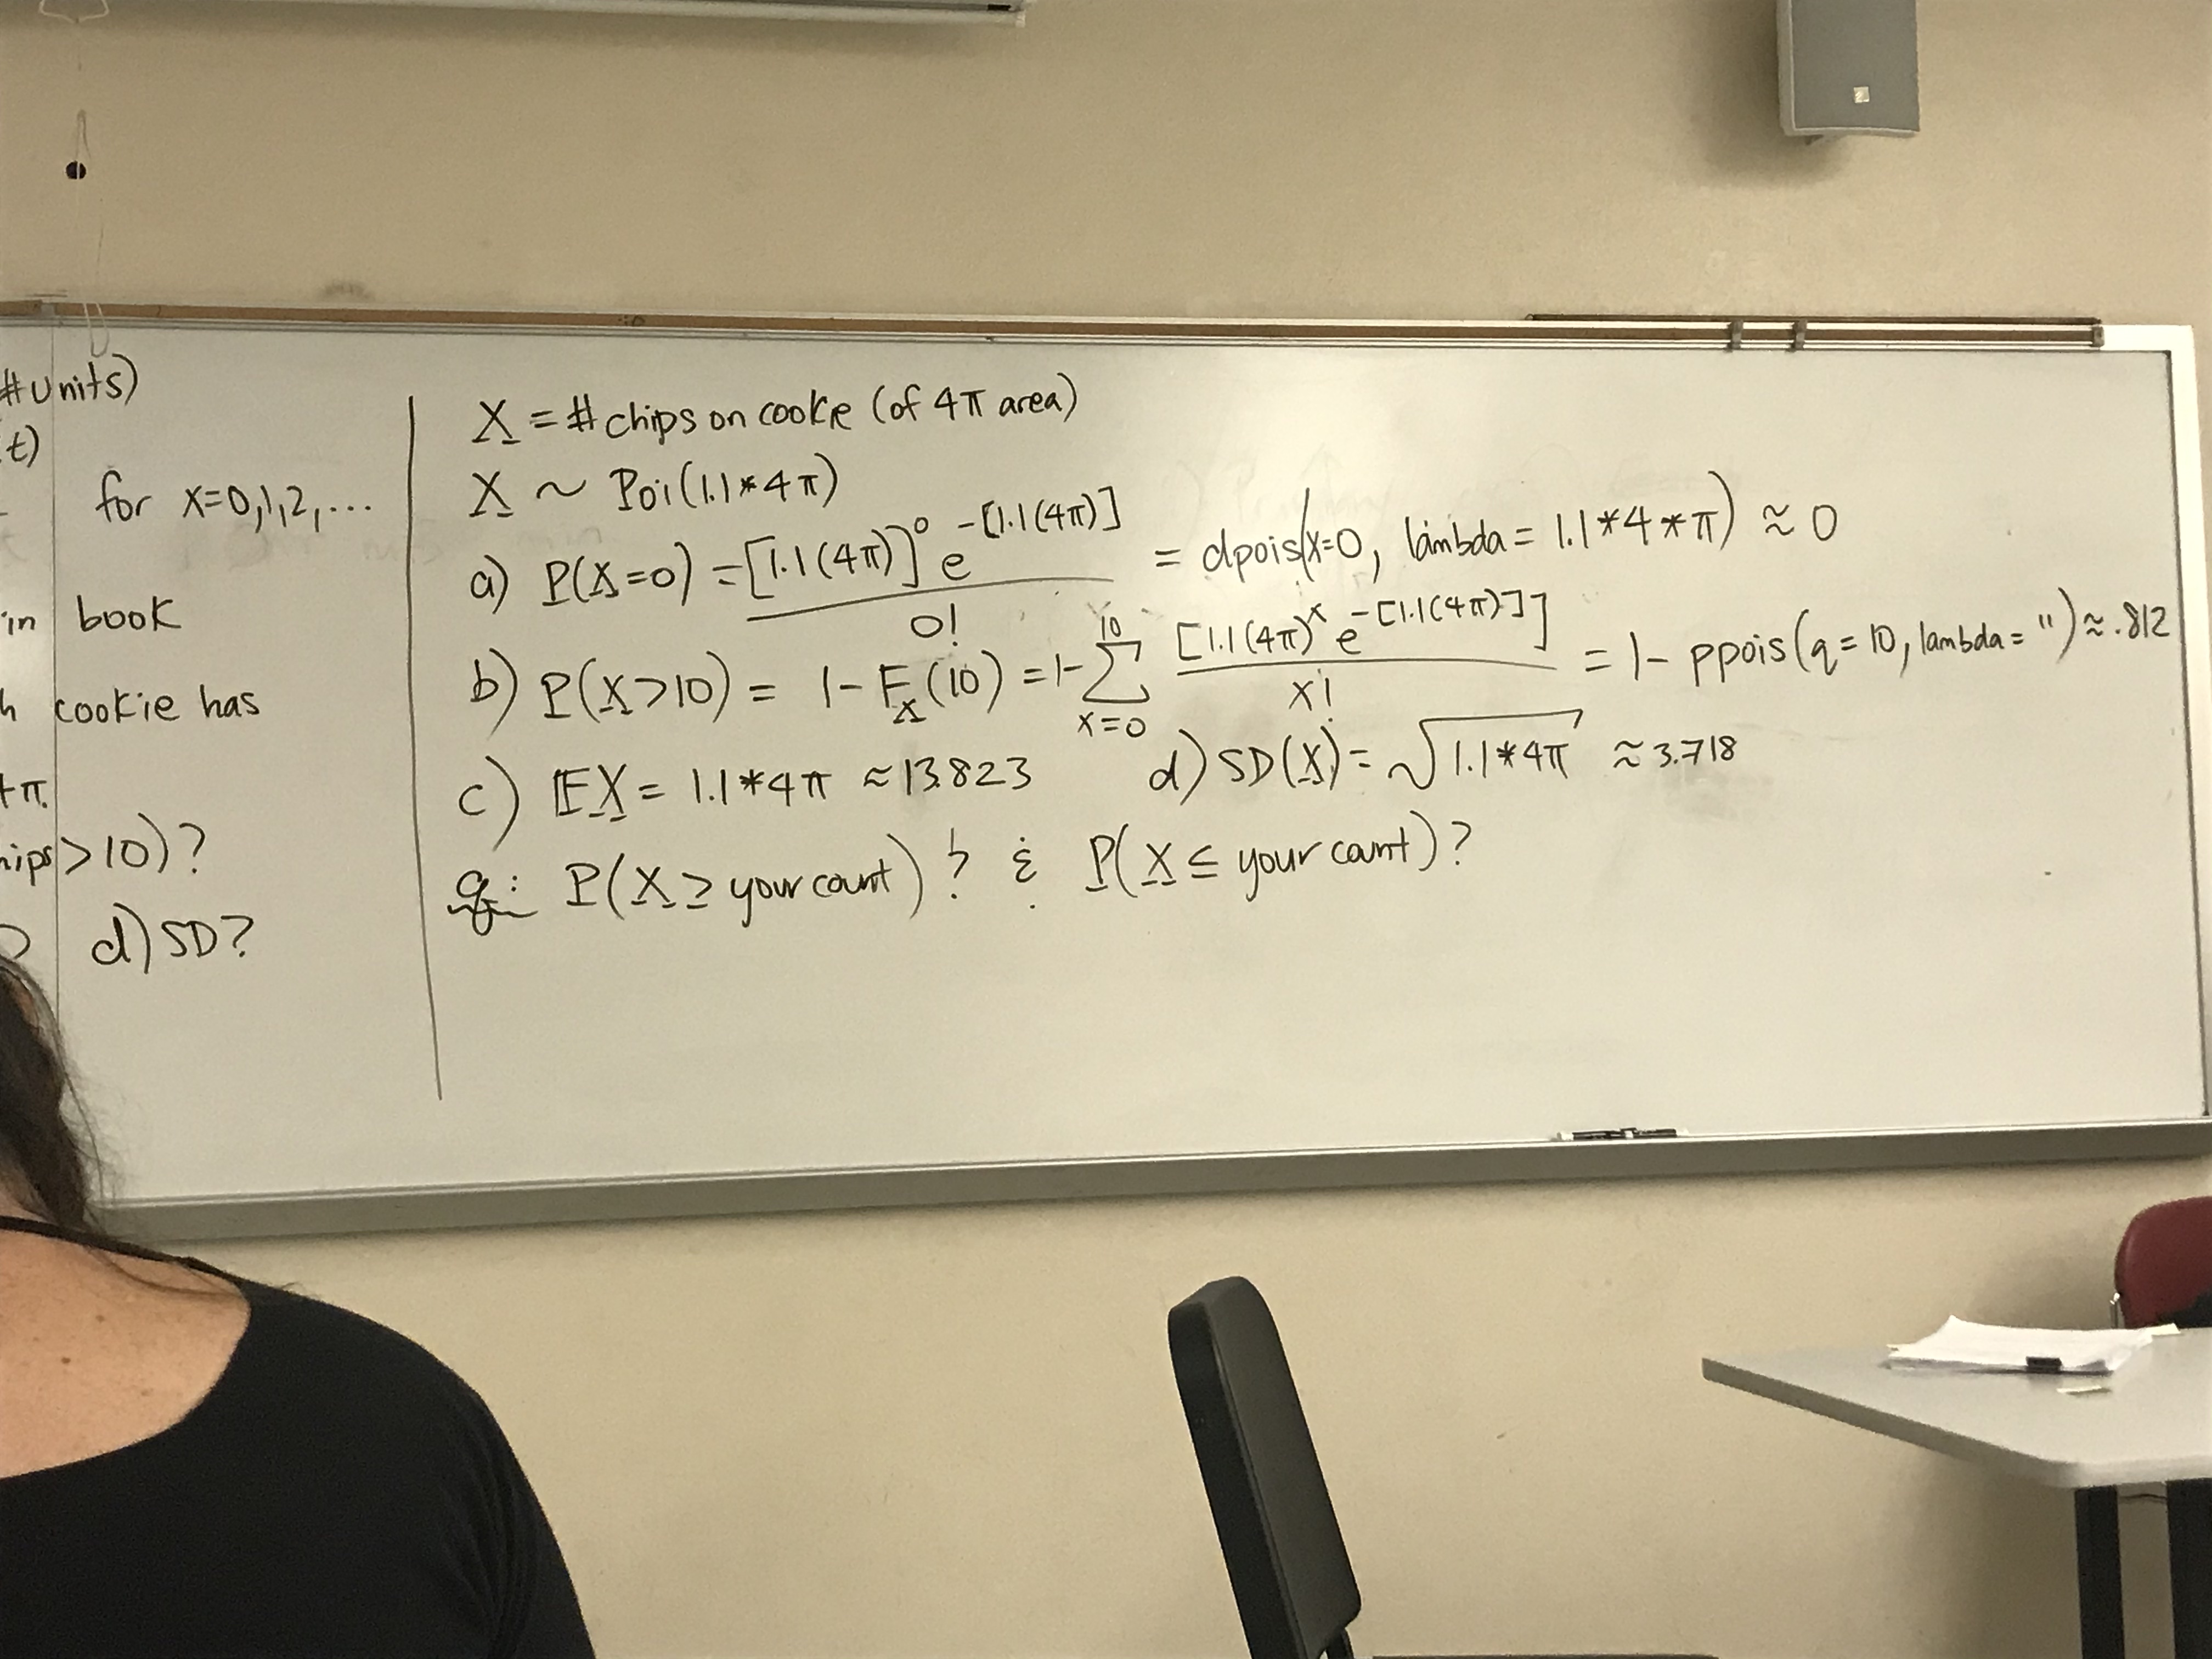 #units)
t)
for x=0,1,2,...
in book
cookie has
π.
hips>10)?
d) SD?
X = # chips on cookie (of 4π area)
X ~ Poi(1.1*4π)
a) P(X=0) = [1.1(4π)]⁰ e^-[1.1(4π)] / 0! = dpois(x=0, lambda = 1.1*4*π) ≈ 0
b) P(X>10) = 1-F_X(10) = 1-∑_{x=0}^{10} [1.1(4π)^x e^-[1.1(4π)]] / x! = 1- ppois(q=10, lambda= ") ≈ .812
c) EX = 1.1*4π ≈ 13.823 d) SD(X) = √1.1*4π ≈ 3.718
q: P(X ≥ your count)? & P(X ≤ your count)?